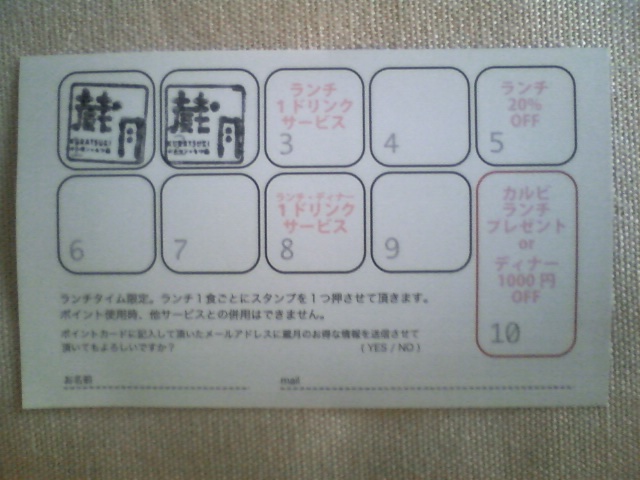 蔵月
KURATSUKI
蔵月
KURATSUKI
ランチ
1ドリンク
サービス
3
4
ランチ
20%
OFF
5
6
7
ランチ・ディナー
1ドリンク
サービス
8
9
カルビ
ランチ
プレゼント
or
ディナー
1000円
OFF
10
ランチタイム限定。ランチ1食ごとにスタンプを1つ押させて頂きます。
ポイント使用時、他サービスとの併用はできません。
ポイントカードに記入して頂いたメールアドレスに蔵月のお得な情報を送信させて
頂いてもよろしいですか？ （YES / NO）
お名前 mail